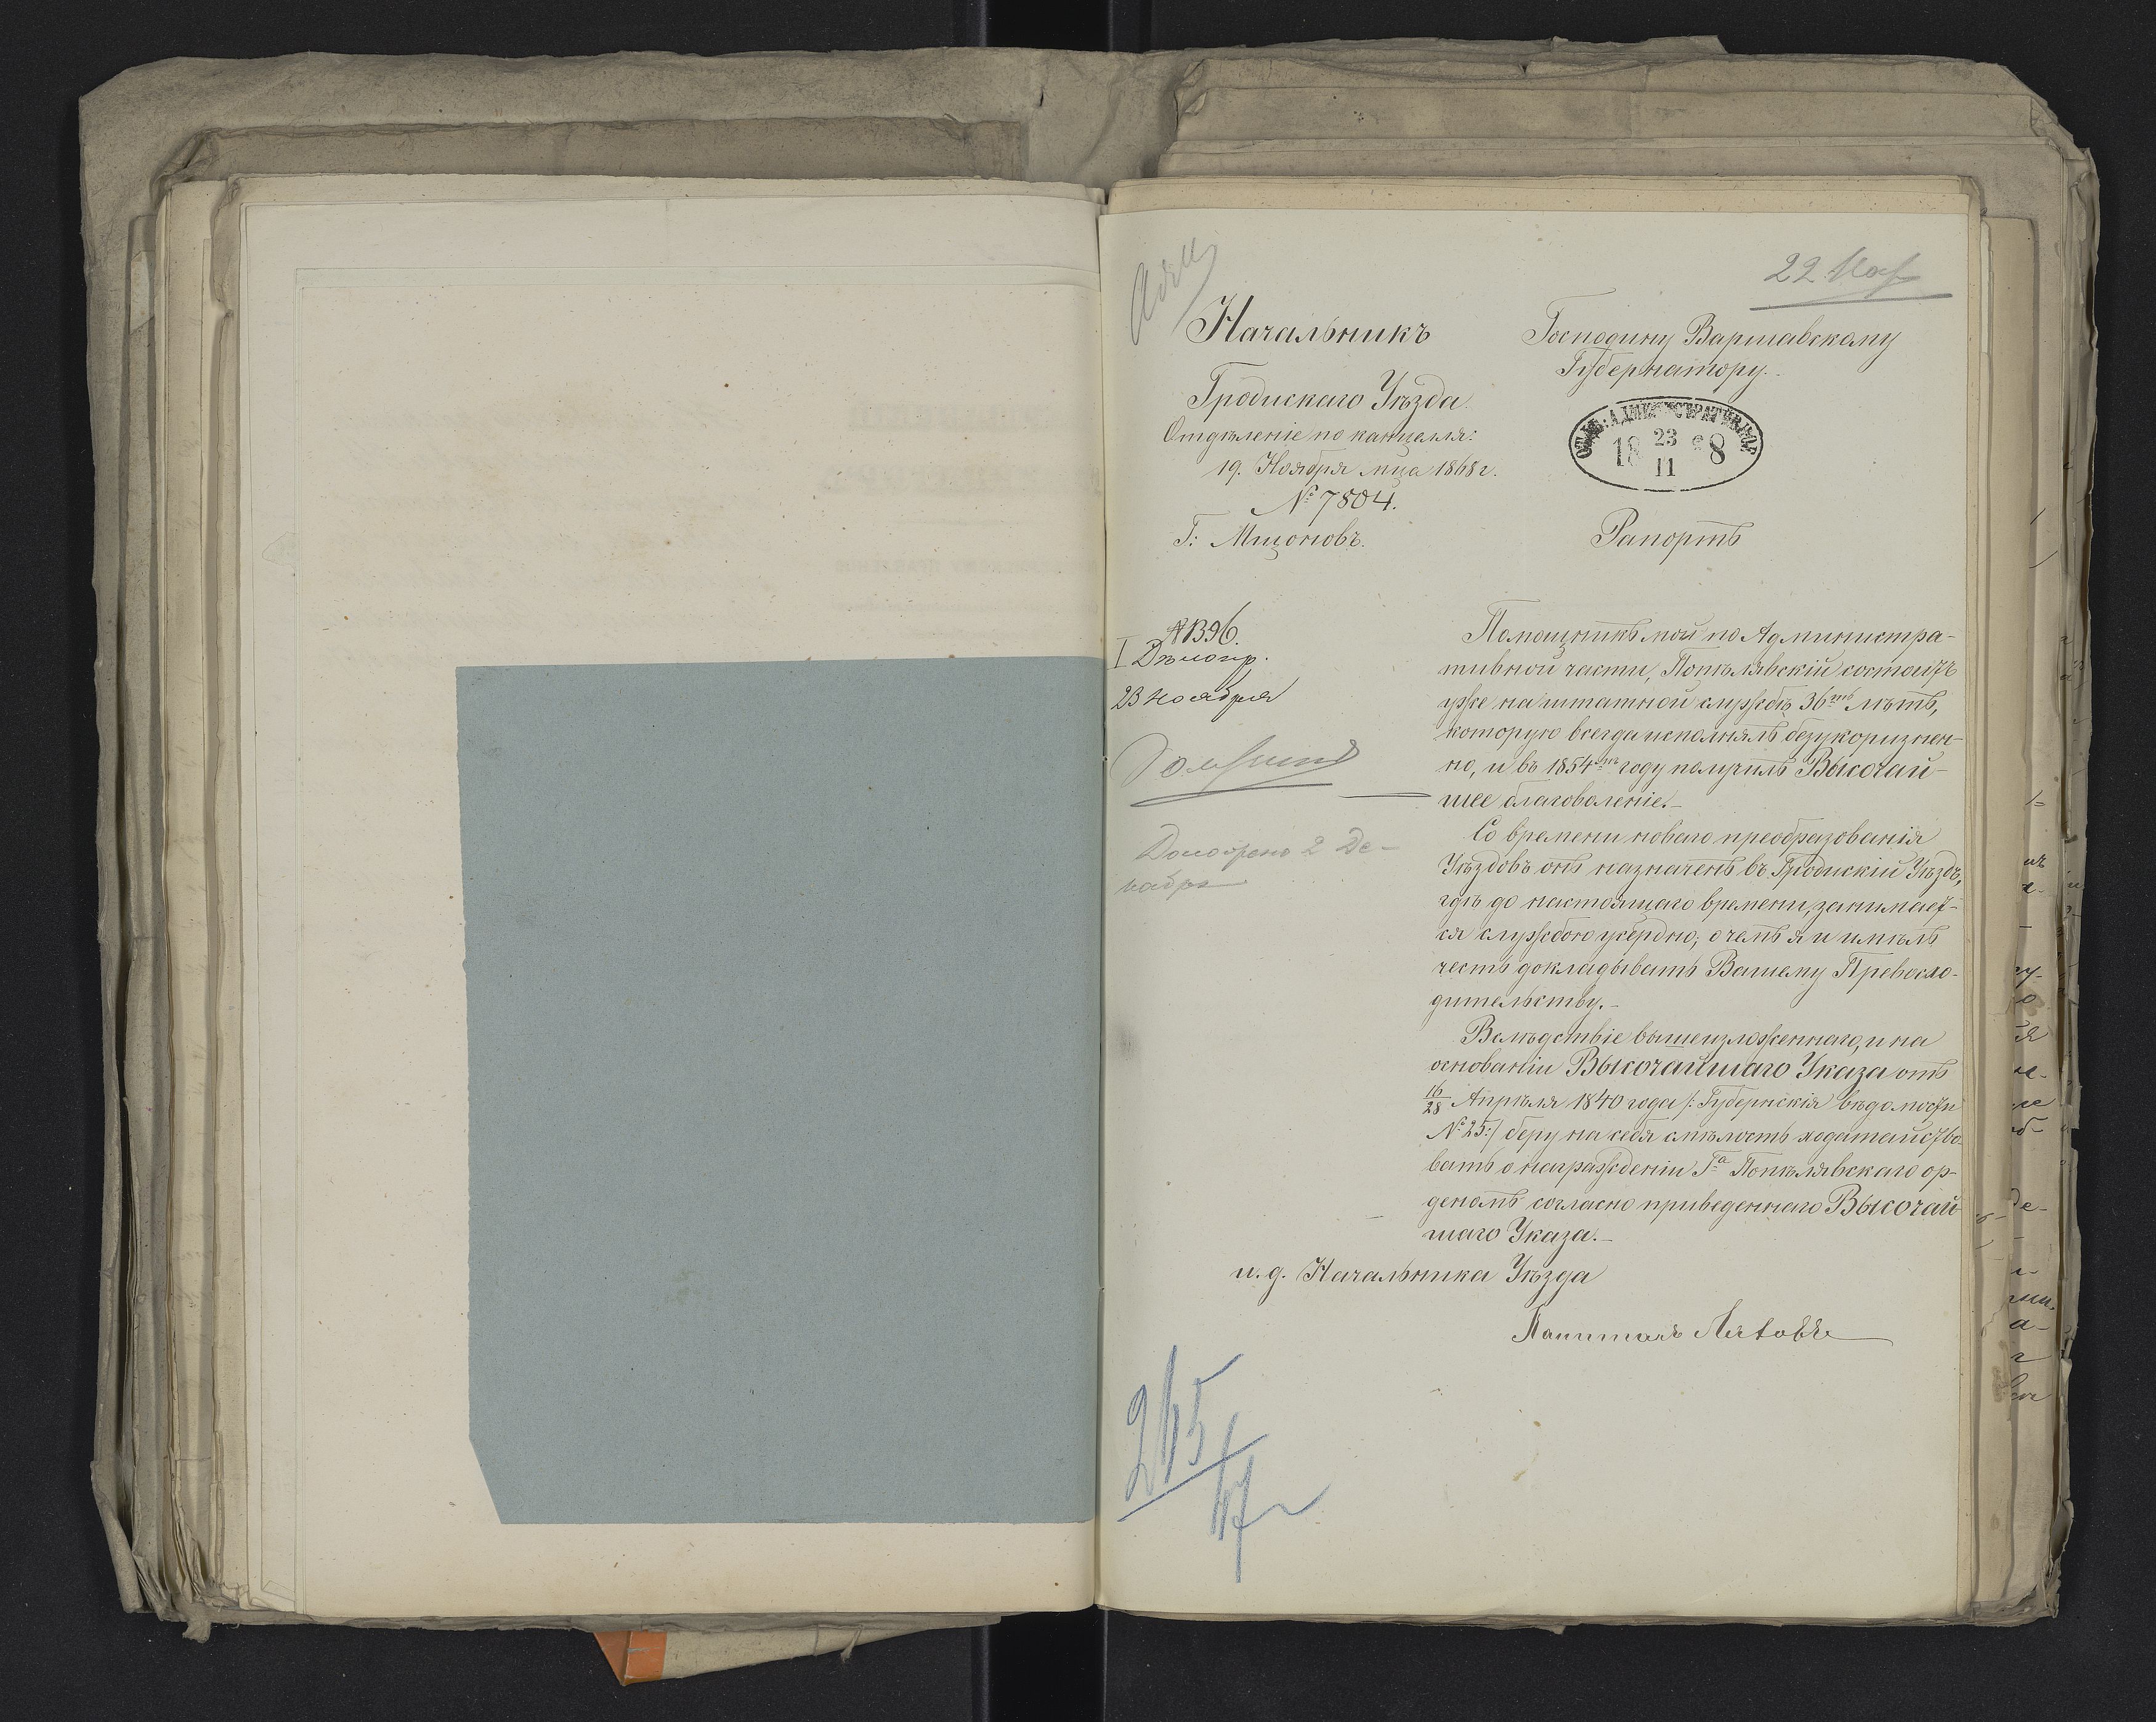 22 Ноя
Начальникъ
Гродискаго Уѣзда.
Отдѣленіе по канцеля:
19. Ноября мца 1868 г.
№ 7804.
Г: Мщоновъ.
Господину Варшавскому
Губернатору.
18 23/11 68
Рапортъ
№ 1396.
23 Ноября
Доложено 2 Де-
кабря
Помощникъ мой по Администра-
тивной части, Попѣлявскій состоитъ
уже на штатной службѣ 36ть лѣтъ,
которую всегда исполнялъ безукоризнен-
но, и въ 1854мъ году получилъ Высочай-
шее благоволеніе.-
Со времени новаго преобразованія
Уѣздовъ онъ назначенъ въ Гродискій Уѣздъ,
гдѣ до настоящаго времени, занимает-
ся службою усердно; о чемъ я и имѣлъ
честь докладывать Вашему Превосхо-
дительству.-
Вслѣдствіе вышеизложеннаго, и на
основаніи Высочайшаго Указа отъ
16/28 Апрѣля 1840 года /: Губернскія вѣдомости
№ 25:/ беру на себя смѣлость ходатайство-
вать о награжденіи Га Попѣлявскаго ор-
деномъ согласно приведеннаго Высочай-
шаго Указа.-
и. д. Начальника Уѣзда
Капитанъ
265/67